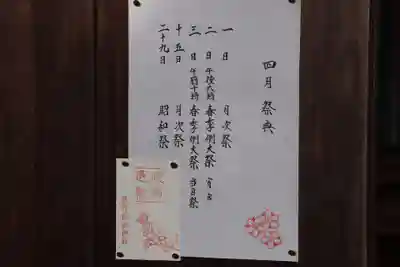 四月祭典
一日 月次祭
二日 午後六時 春季例大祭 宵宮
三日 午前十時 春季例大祭 当日祭
十五日 月次祭
二十九日 昭和祭